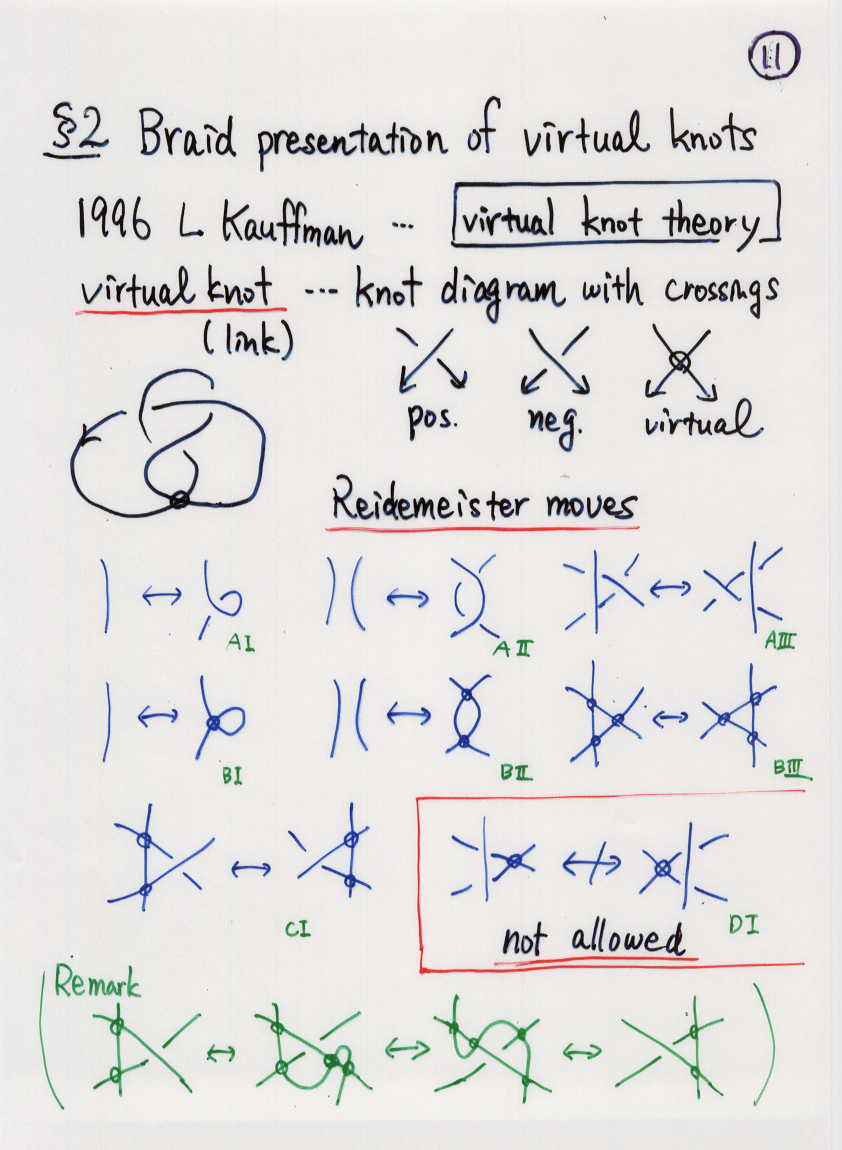 11
§2 Braid presentation of virtual knots
1996 L. Kauffman ... virtual knot theory
virtual knot ... knot diagram with crossings
(link)
pos. neg. virtual
Reidemeister moves
AI AII AIII
BI BII BIII
CI
not allowed DI
(Remark )